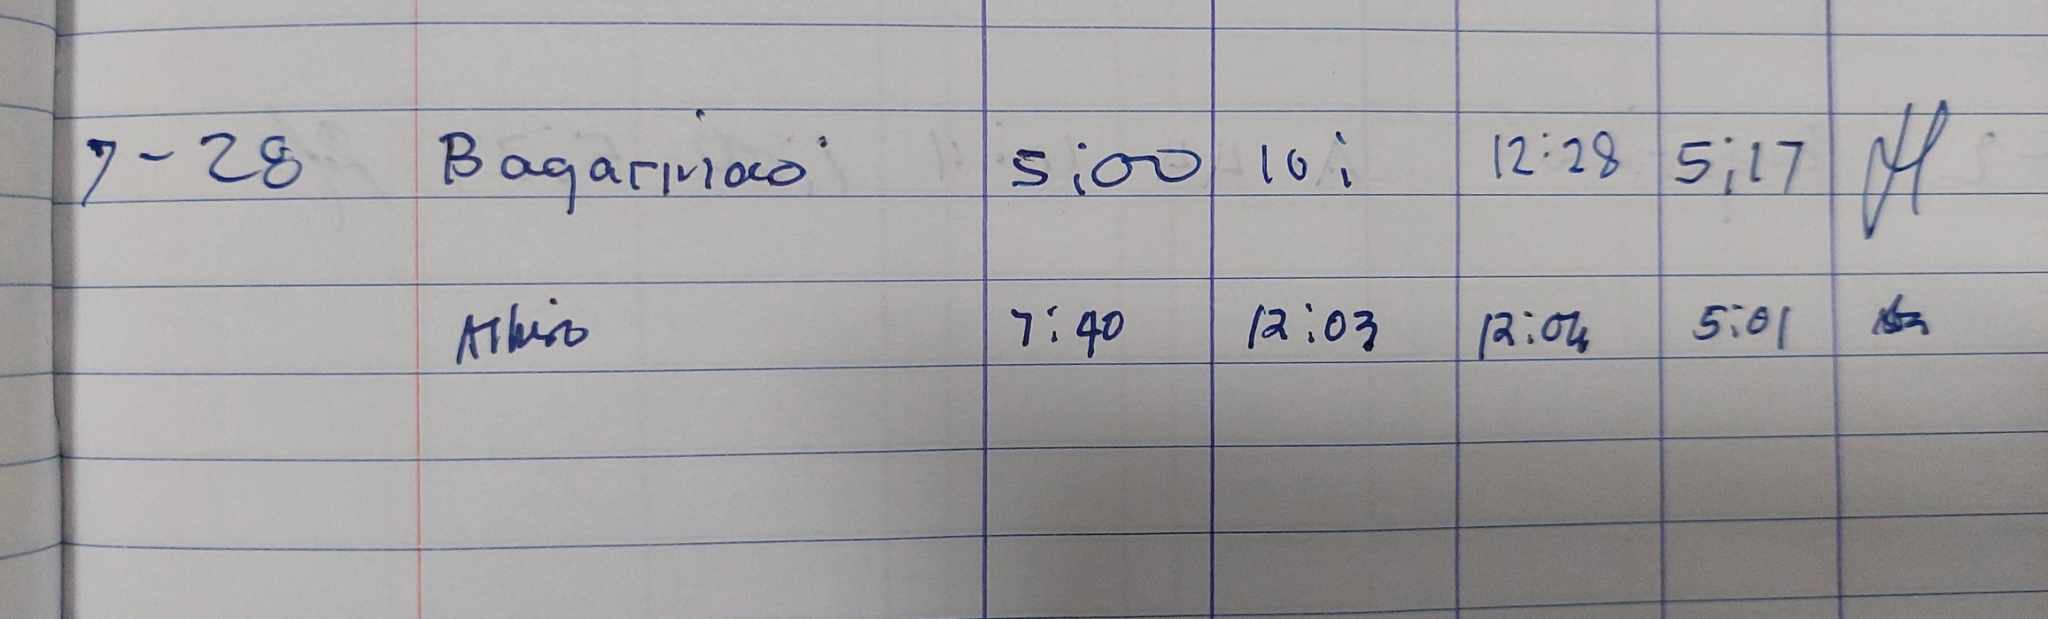 7-28 Bagarinao 5:00 10: 12:28 5:17
Albiso 7:40 12:03 12:04 5:01